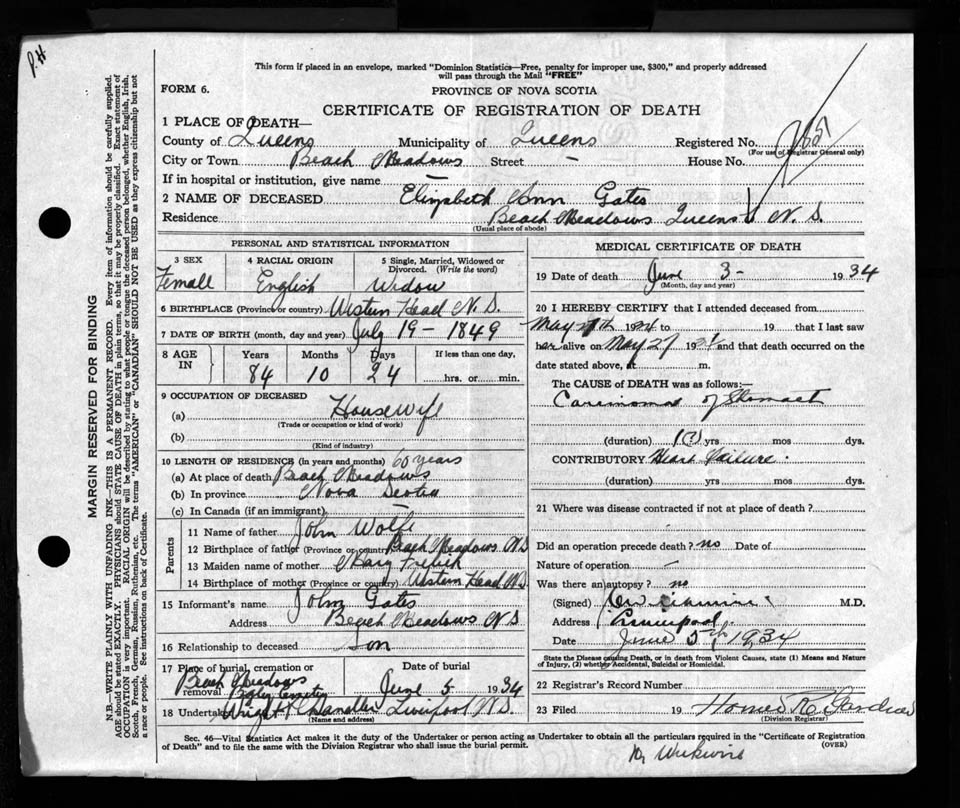 P.H
This form if placed in an envelope, marked "Dominion Statistics—Free, penalty for improper use, $300," and properly addressed
will pass through the Mail "FREE"
FORM 6.
PROVINCE OF NOVA SCOTIA
CERTIFICATE OF REGISTRATION OF DEATH
1 PLACE OF DEATH—
County of Queens Municipality of Queens Registered No.
(For use of Registrar General only)
City or Town Beach Meadows Street – House No.
If in hospital or institution, give name –
2 NAME OF DECEASED Elizabeth Ann Gates
Residence Beach Meadows Queens N. S.
(Usual place of abode)
PERSONAL AND STATISTICAL INFORMATION
3 SEX 4 RACIAL ORIGIN 5 Single, Married, Widowed or
Divorced. (Write the word)
Female English Widow
6 BIRTHPLACE (Province or country) Western Head N. S.
7 DATE OF BIRTH (month, day and year) July 19 – 1849
8 AGE IN Years Months Days If less than one day,
84 10 24 hrs. or min.
9 OCCUPATION OF DECEASED
(a) Housewife
(Trade or occupation or kind of work)
(b)
(Kind of industry)
10 LENGTH OF RESIDENCE (in years and months) 60 years
(a) At place of death Beach Meadows
(b) In province Nova Scotia
(c) In Canada (if an immigrant) –
Parents
11 Name of father John Wolfe
12 Birthplace of father (Province or country) Beach Meadows NS
13 Maiden name of mother Mary
14 Birthplace of mother (Province or country) Western Head NS
15 Informant's name John Gates
Address Beach Meadows N S
16 Relationship to deceased Son
17 Place of burial, cremation or removal Date of burial
Beach Meadows Cemetery June 5 1934
18 Undertaker Wright Chandler Liverpool N.S.
(Name and address)
MEDICAL CERTIFICATE OF DEATH
19 Date of death June 3 – 1934
(Month, day and year)
20 I HEREBY CERTIFY that I attended deceased from
May 1934 to 19 that I last saw
her alive on May 27 1934 and that death occurred on the
date stated above, at m.
The CAUSE of DEATH was as follows:—
Carcinoma of Stomach
(duration) 1(?) yrs mos dys.
CONTRIBUTORY Heart Failure.
(duration) yrs mos dys.
21 Where was disease contracted if not at place of death?
Did an operation precede death? no Date of
Nature of operation –
Was there an autopsy? no
(Signed) M.D.
Address Liverpool
Date June 5th 1934
State the Disease causing Death, or in death from Violent Causes, state (1) Means and Nature
of Injury, (2) whether Accidental, Suicidal or Homicidal.
22 Registrar's Record Number
23 Filed 19
(Division Registrar)
Sec. 46—Vital Statistics Act makes it the duty of the Undertaker or person acting as Undertaker to obtain all the particulars required in the "Certificate of Registration
of Death" and to file the same with the Division Registrar who shall issue the burial permit.
(OVER)
MARGIN RESERVED FOR BINDING
N.B.—WRITE PLAINLY WITH UNFADING INK—THIS IS A PERMANENT RECORD. Every item of information should be carefully supplied.
AGE should be stated EXACTLY. PHYSICIANS should STATE CAUSE OF DEATH in plain terms, so that it may be properly classified. Exact statement of
OCCUPATION is very important. RACIAL ORIGIN will be described by stating to what people or tongue the deceased person belonged, whether English, Irish,
Scotch, French, German, Russian, Ruthenian, etc. The terms "AMERICAN" or "CANADIAN" SHOULD NOT BE USED as they express citizenship but not
a race or people. See instructions on back of Certificate.